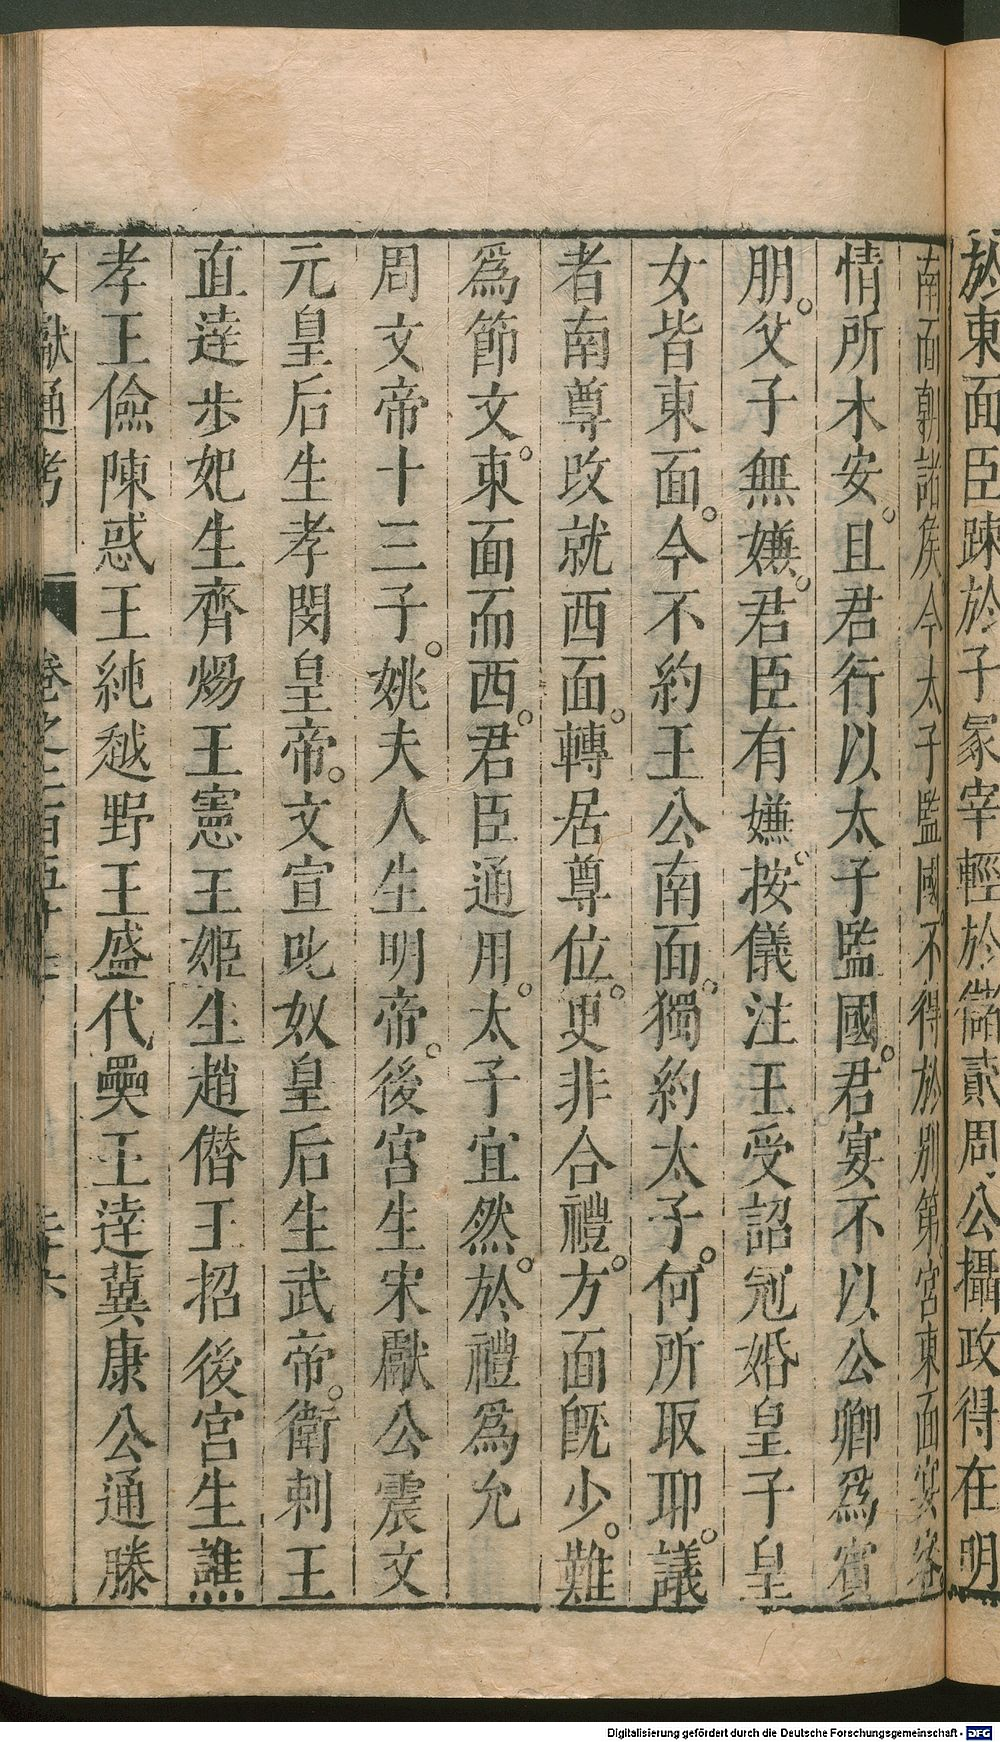 於東面臣踈於子冢宰輕於儲貳周公攝政得在明
南面朝諸侯今太子監國不得於別第宮東面宴客
情所未安。且君行以太子監國。君宴不以公卿爲賓
朋。父子無嫌。君臣有嫌。按儀注王受詔冠婚皇子皇
女皆東面。今不約王公南面。獨約太子。何所取耶。議
者南尊改就西面。轉居尊位。更非合禮。方面旣少。難
爲節文。東面而西。君臣通用。太子宜然。於禮爲允
周文帝十三子。姚夫人生明帝。後宮生宋獻公震文
元皇后生孝閔皇帝。文宣叱奴皇后生武帝。衛剌王
直達步妃生齊煬王憲王姬生趙僭王招後宮生譙
孝王儉陳惑王純越野王盛代奰王達冀康公通滕
文獻通考 卷之二百五十七 二十六
Digitalisierung gefördert durch die Deutsche Forschungsgemeinschaft - DFG